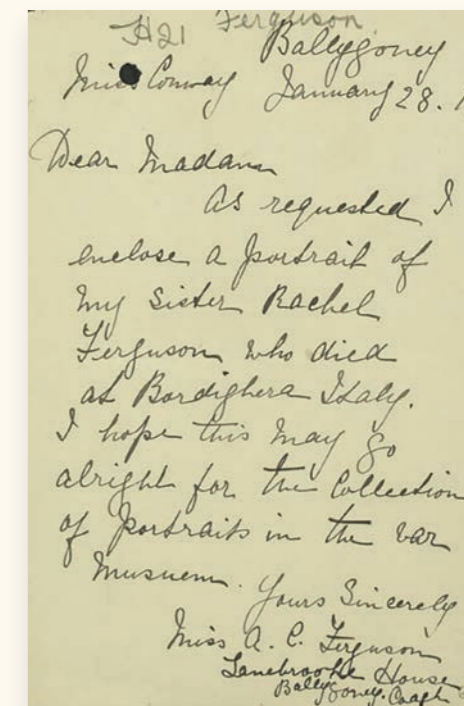 H21 Ferguson
Ballygoney
Miss Conway January 28. 1
Dear Madam
As requested I
enclose a portrait of
my sister Rachel
Ferguson who died
at Bordighera Italy.
I hope this may go
alright for the Collection
of portraits in the war
musuem. Yours Sincerely
Miss A. C. Ferguson
Lanebrooke House
Ballygoney. Coagh